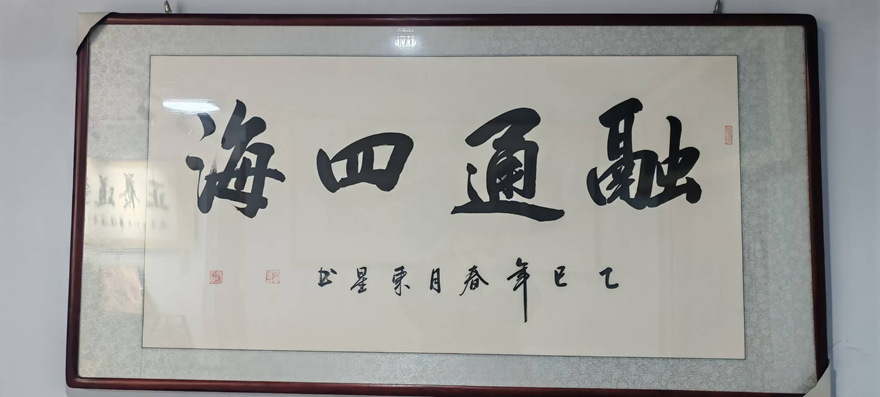 融通四海
乙巳年春月东星书